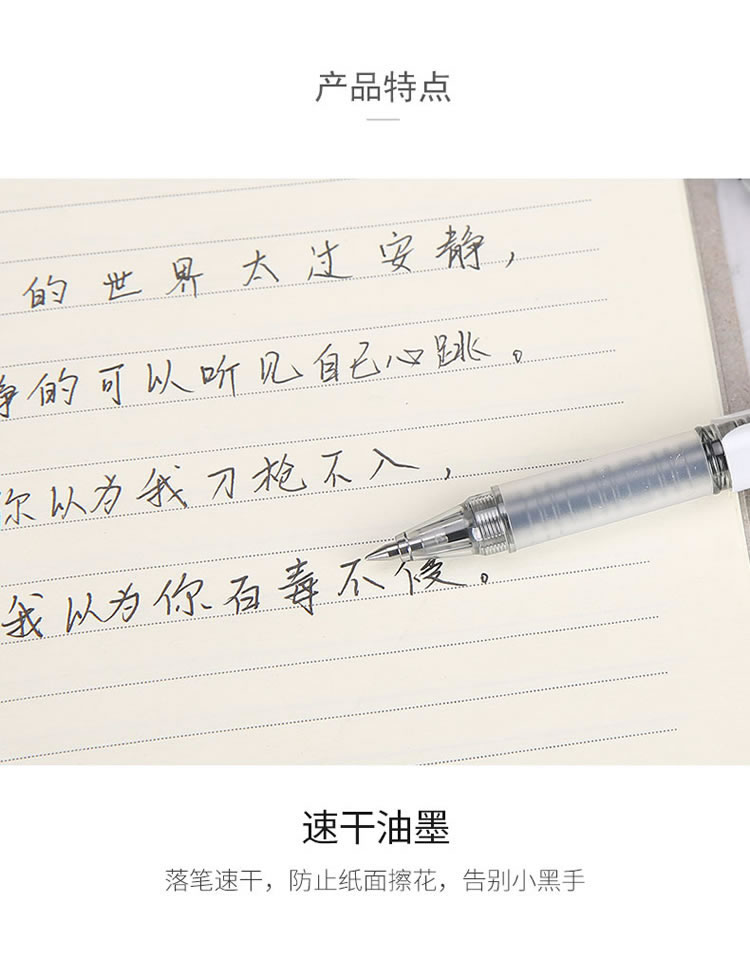 产品特点
的世界太过安静，
静的可以听见自己心跳。
你以为我刀枪不入，
我以为你百毒不侵。
速干油墨
落笔速干，防止纸面擦花，告别小黑手